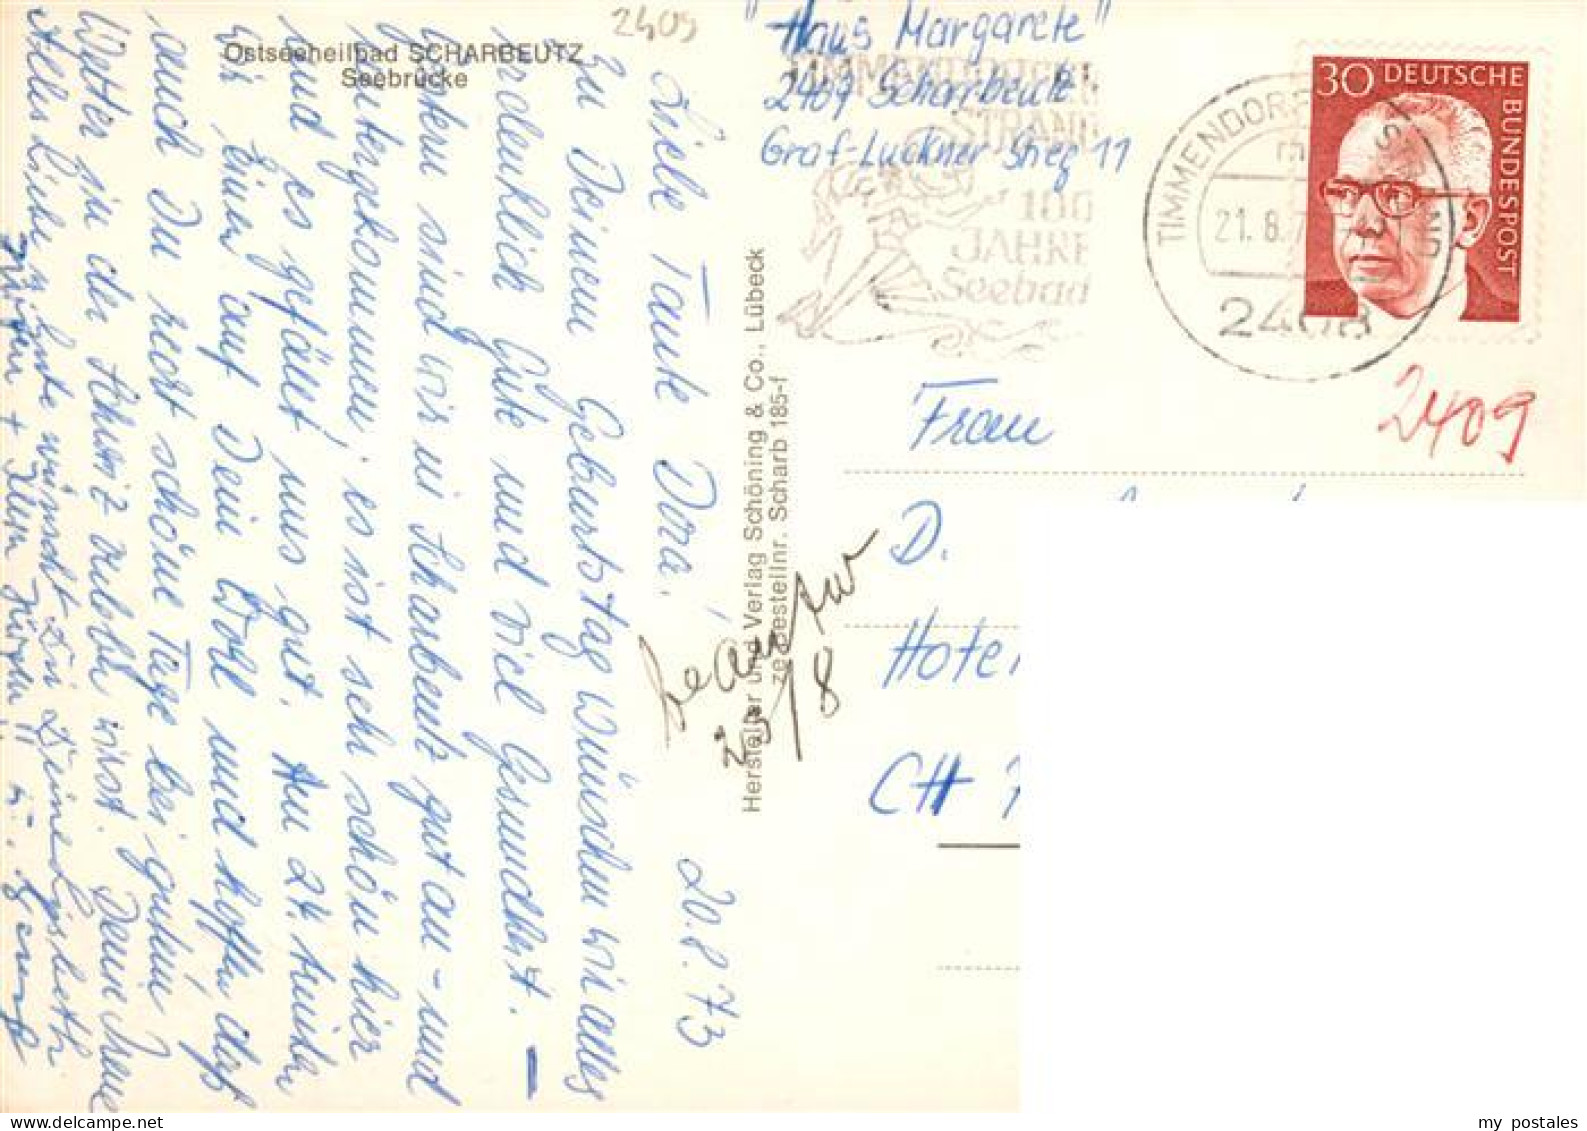 2409
Ostseeheilbad SCHARBEUTZ
Seebrücke
20.8.73
Liebe Tante Dora!
Zu Deinem Geburtstag wünschen wir alles
erdenklich Gute und viel Gesundheit. –
Gestern sind wir in Scharbeutz gut an- und
untergekommen, es ist sehr schön hier
und es gefällt uns gut. Am 24.
wir einen auf Dein Woll und hoffen, daß
auch Du recht schöne Tage bei gutem
Wetter in der Schweiz haben wirst. Deine Irene
Alles Liebe + Gute wünscht Dir Deine Lisbeth
Hersteller und Verlag Schöning & Co., Lübeck
Bestellnr. Scharb 185-f
23/8
"Haus Margarete"
2409 Scharbeutz
Graf-Luckner Stieg 11
TIMMENDORFER
STRAND
100
JAHRE
Seebad
TIMMENDORFER STRAND
21.8.7
2408
30 DEUTSCHE
BUNDESPOST
2409
Frau
D.
Hotel
CH
my postales